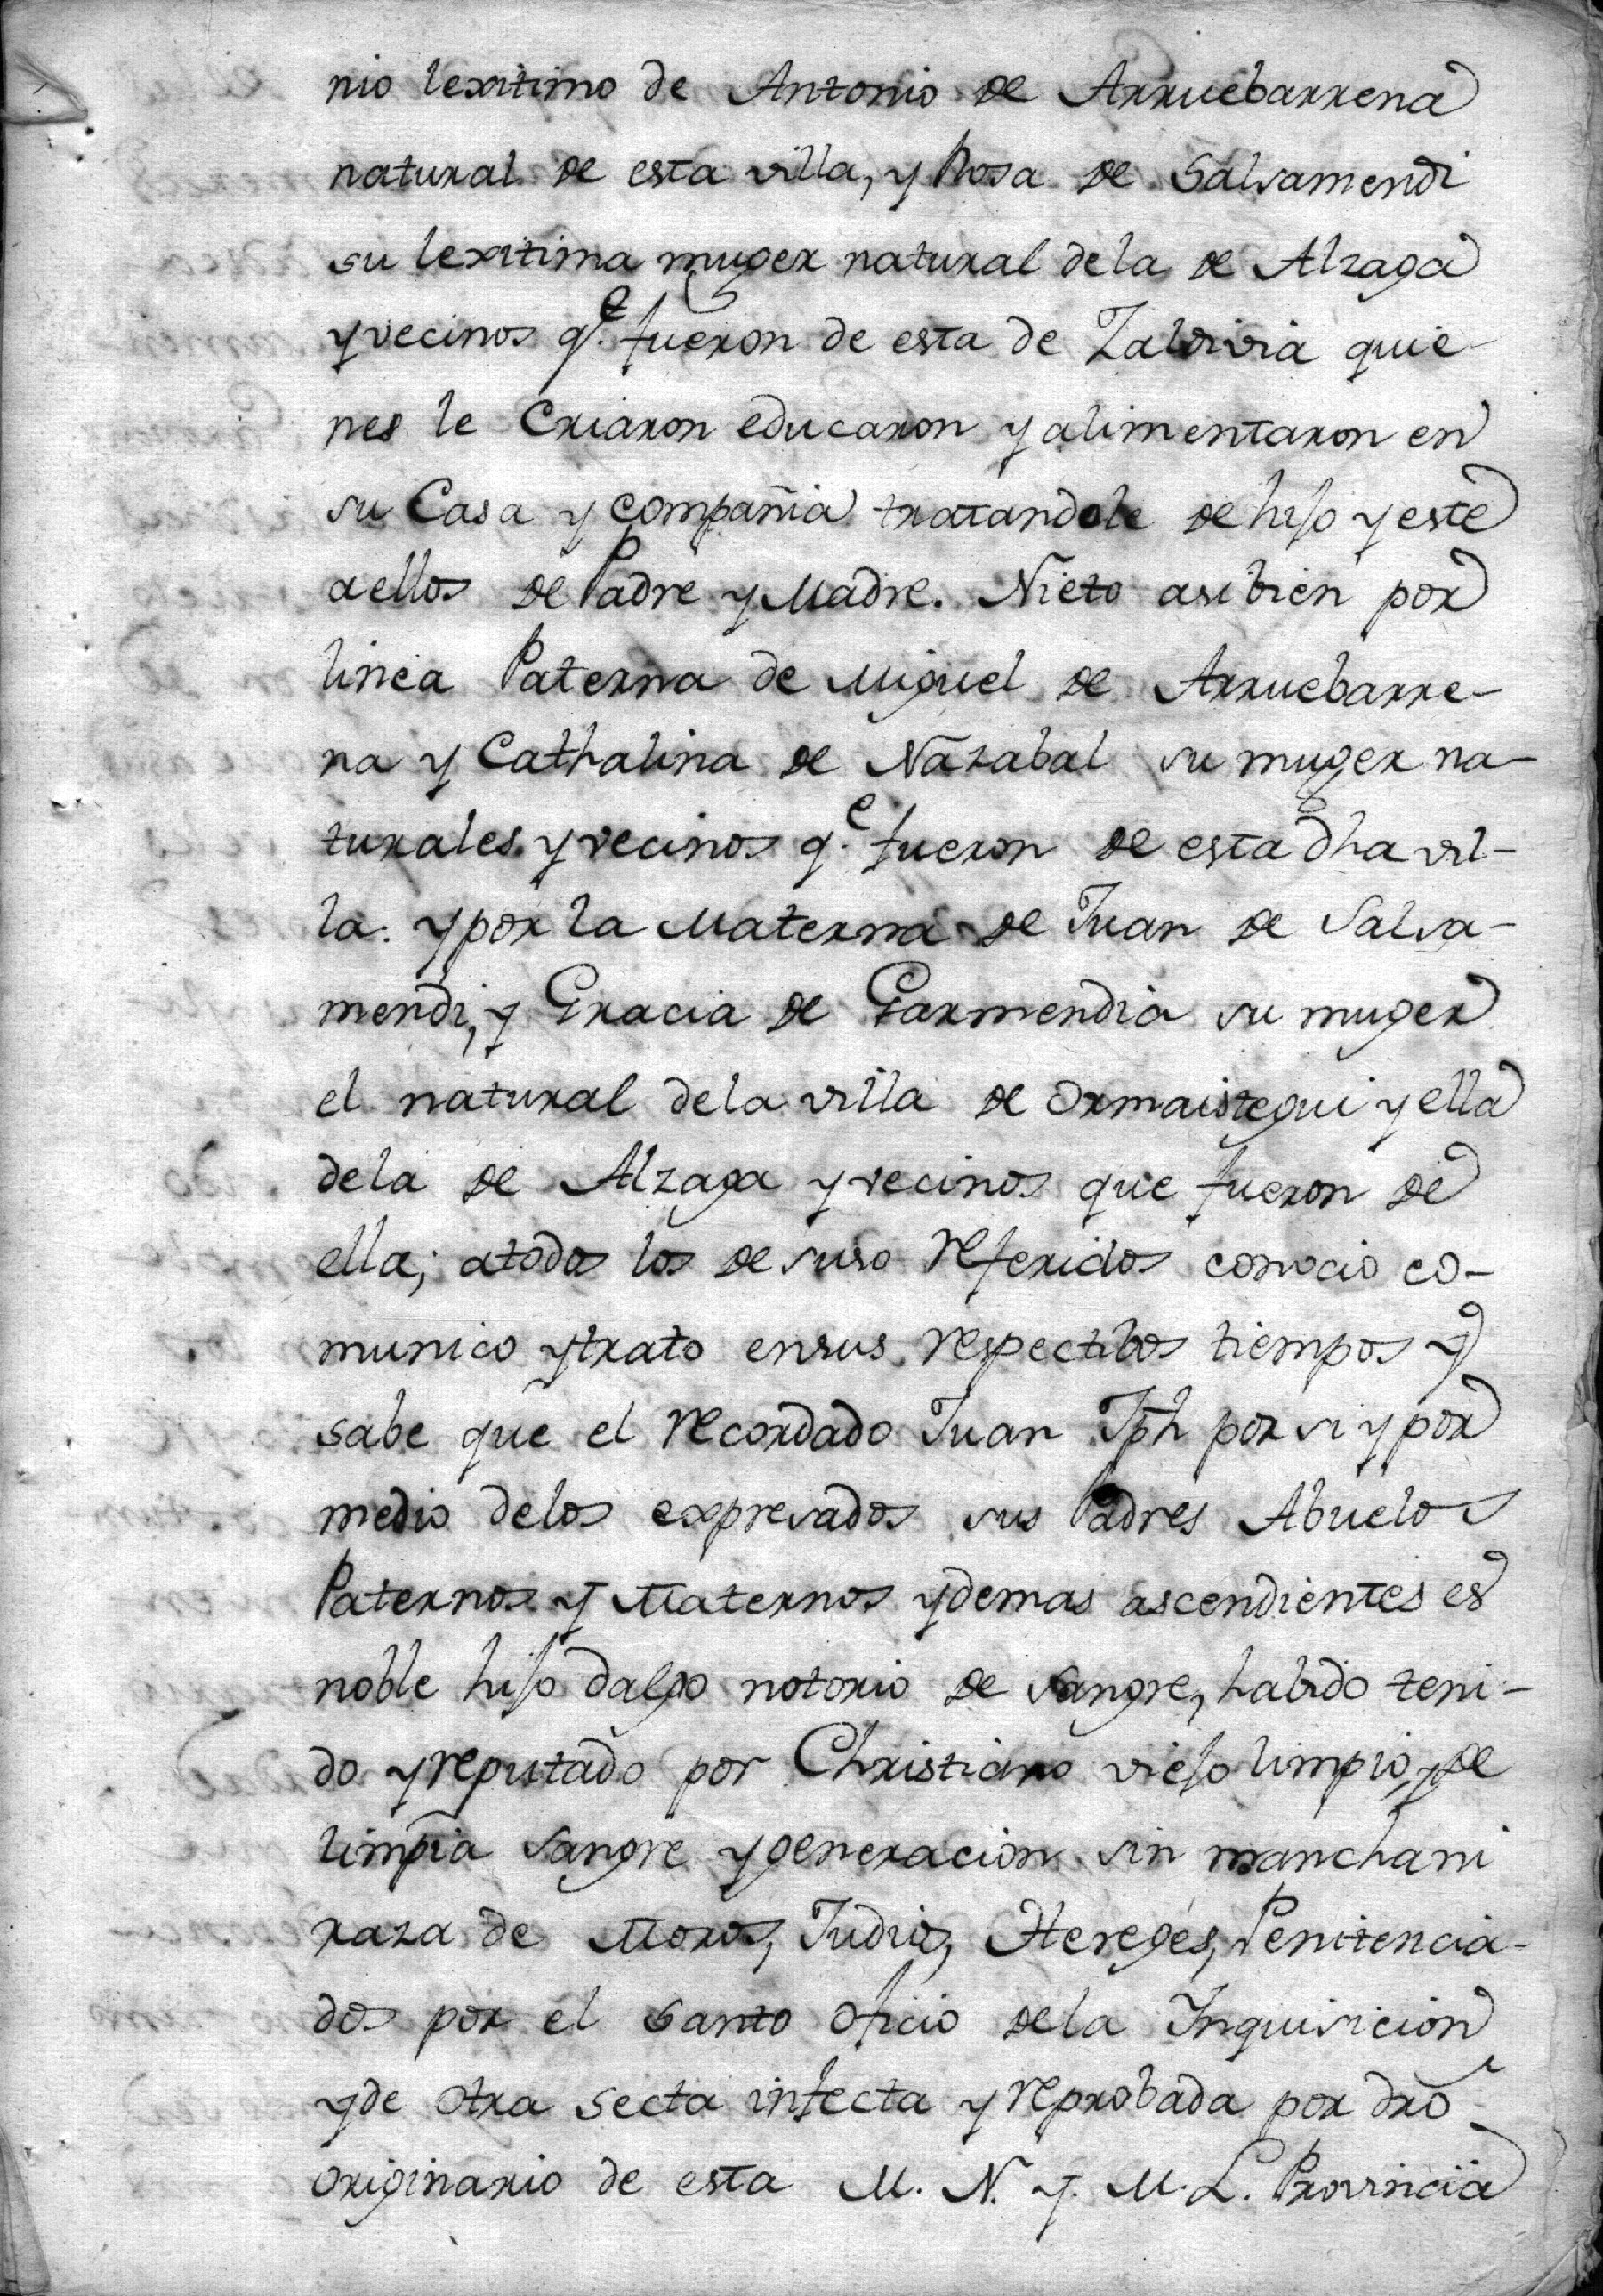 nio lexitimo de Antonio de Arruebarrena
natural de esta villa, y Rosa de Salsamendi
su lexitima muger natural dela de Alzaga
y vecinos q.e fueron de esta de Zaldivia quie-
nes le Criaron educaron y alimentaron en
su Casa y compañia tratandole de hijo y este
aellos de Padre y Madre. Nieto asibien por
linea Paterna de Miguel de Arruebarre-
na y Cathalina de Nazabal su muger na-
turales y vecinos q.e fueron de esta dha vil-
la. y por la Materna de Juan de Salsa-
mendi, y Gracia de Garmendia su muger
el natural dela villa de Ormaistegui y ella
dela de Alzaga y vecinos que fueron de
ella; atodos los de suso referidos conocio co-
munico y trato ensus respectibos tiempos y
sabe que el recordado Juan Jph por si y por
medio delos expresados sus Padres Abuelos
Paternos y Maternos y demas ascendientes es
noble hijo dalgo notorio de sangre, habido teni-
do y reputado por Christiano viejo limpio, y de
limpia sangre y generacion sin manchani
raza de Moros, Judios, Hereges, Penitencia-
dos por el santo oficio dela Inquisicion
y de otra secta infecta y reprobada por dro
originario de esta M. N. y. M. L. Provincia